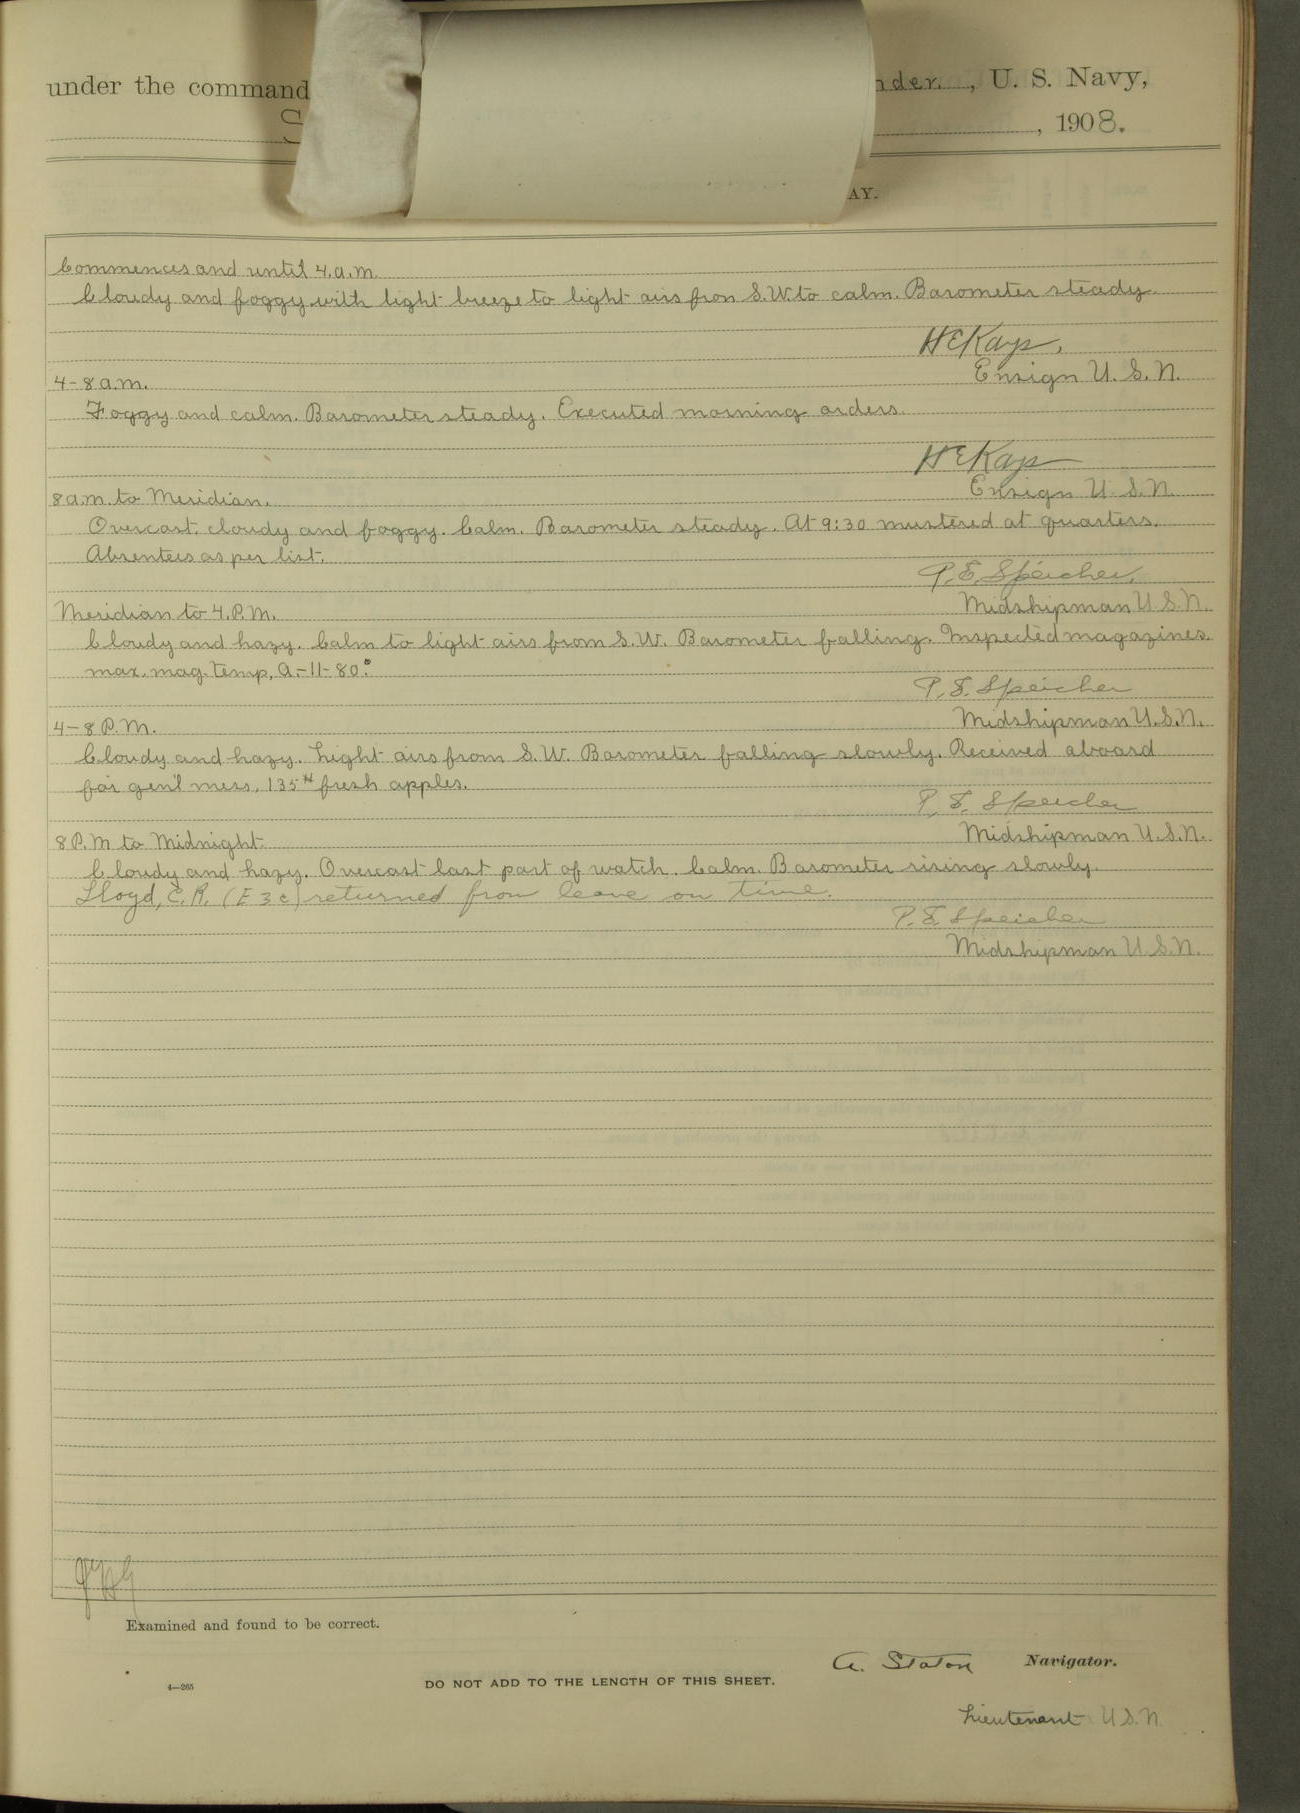 under the command nder. , U. S. Navy,
S , 1908.
AY.
Commences and until 4.a.m.
Cloudy and foggy with light breeze to light airs from S.W. to calm. Barometer steady.
HEKays,
Ensign U. S. N.
4-8 a.m.
Foggy and calm. Barometer steady. Executed morning orders.
HEKays
Ensign U. S. N.
8 a.m. to Meridian.
Overcast, cloudy and foggy. Calm. Barometer steady. At 9:30 mustered at quarters.
Absentees as per list.
P. E. Speicher,
Midshipman U.S.N.
Meridian to 4.P.M.
Cloudy and hazy. Calm to light airs from S.W. Barometer falling. Inspected magazines.
max. mag. temp, A-11-80°.
P. E. Speicher
Midshipman U.S.N.
4-8 P.M.
Cloudy and hazy. Light airs from S.W. Barometer falling slowly. Received aboard
for gen'l mess, 135# fresh apples.
P. E. Speicher
Midshipman U.S.N.
8 P.M to Midnight.
Cloudy and hazy. Overcast last part of watch. Calm. Barometer rising slowly.
Lloyd, C. R. (E 3 c) returned from leave on time.
P. E. Speicher
Midshipman U.S.N.
Examined and found to be correct.
A. Staton Navigator.
4—265 DO NOT ADD TO THE LENGTH OF THIS SHEET.
Lieutenant U.S.N.